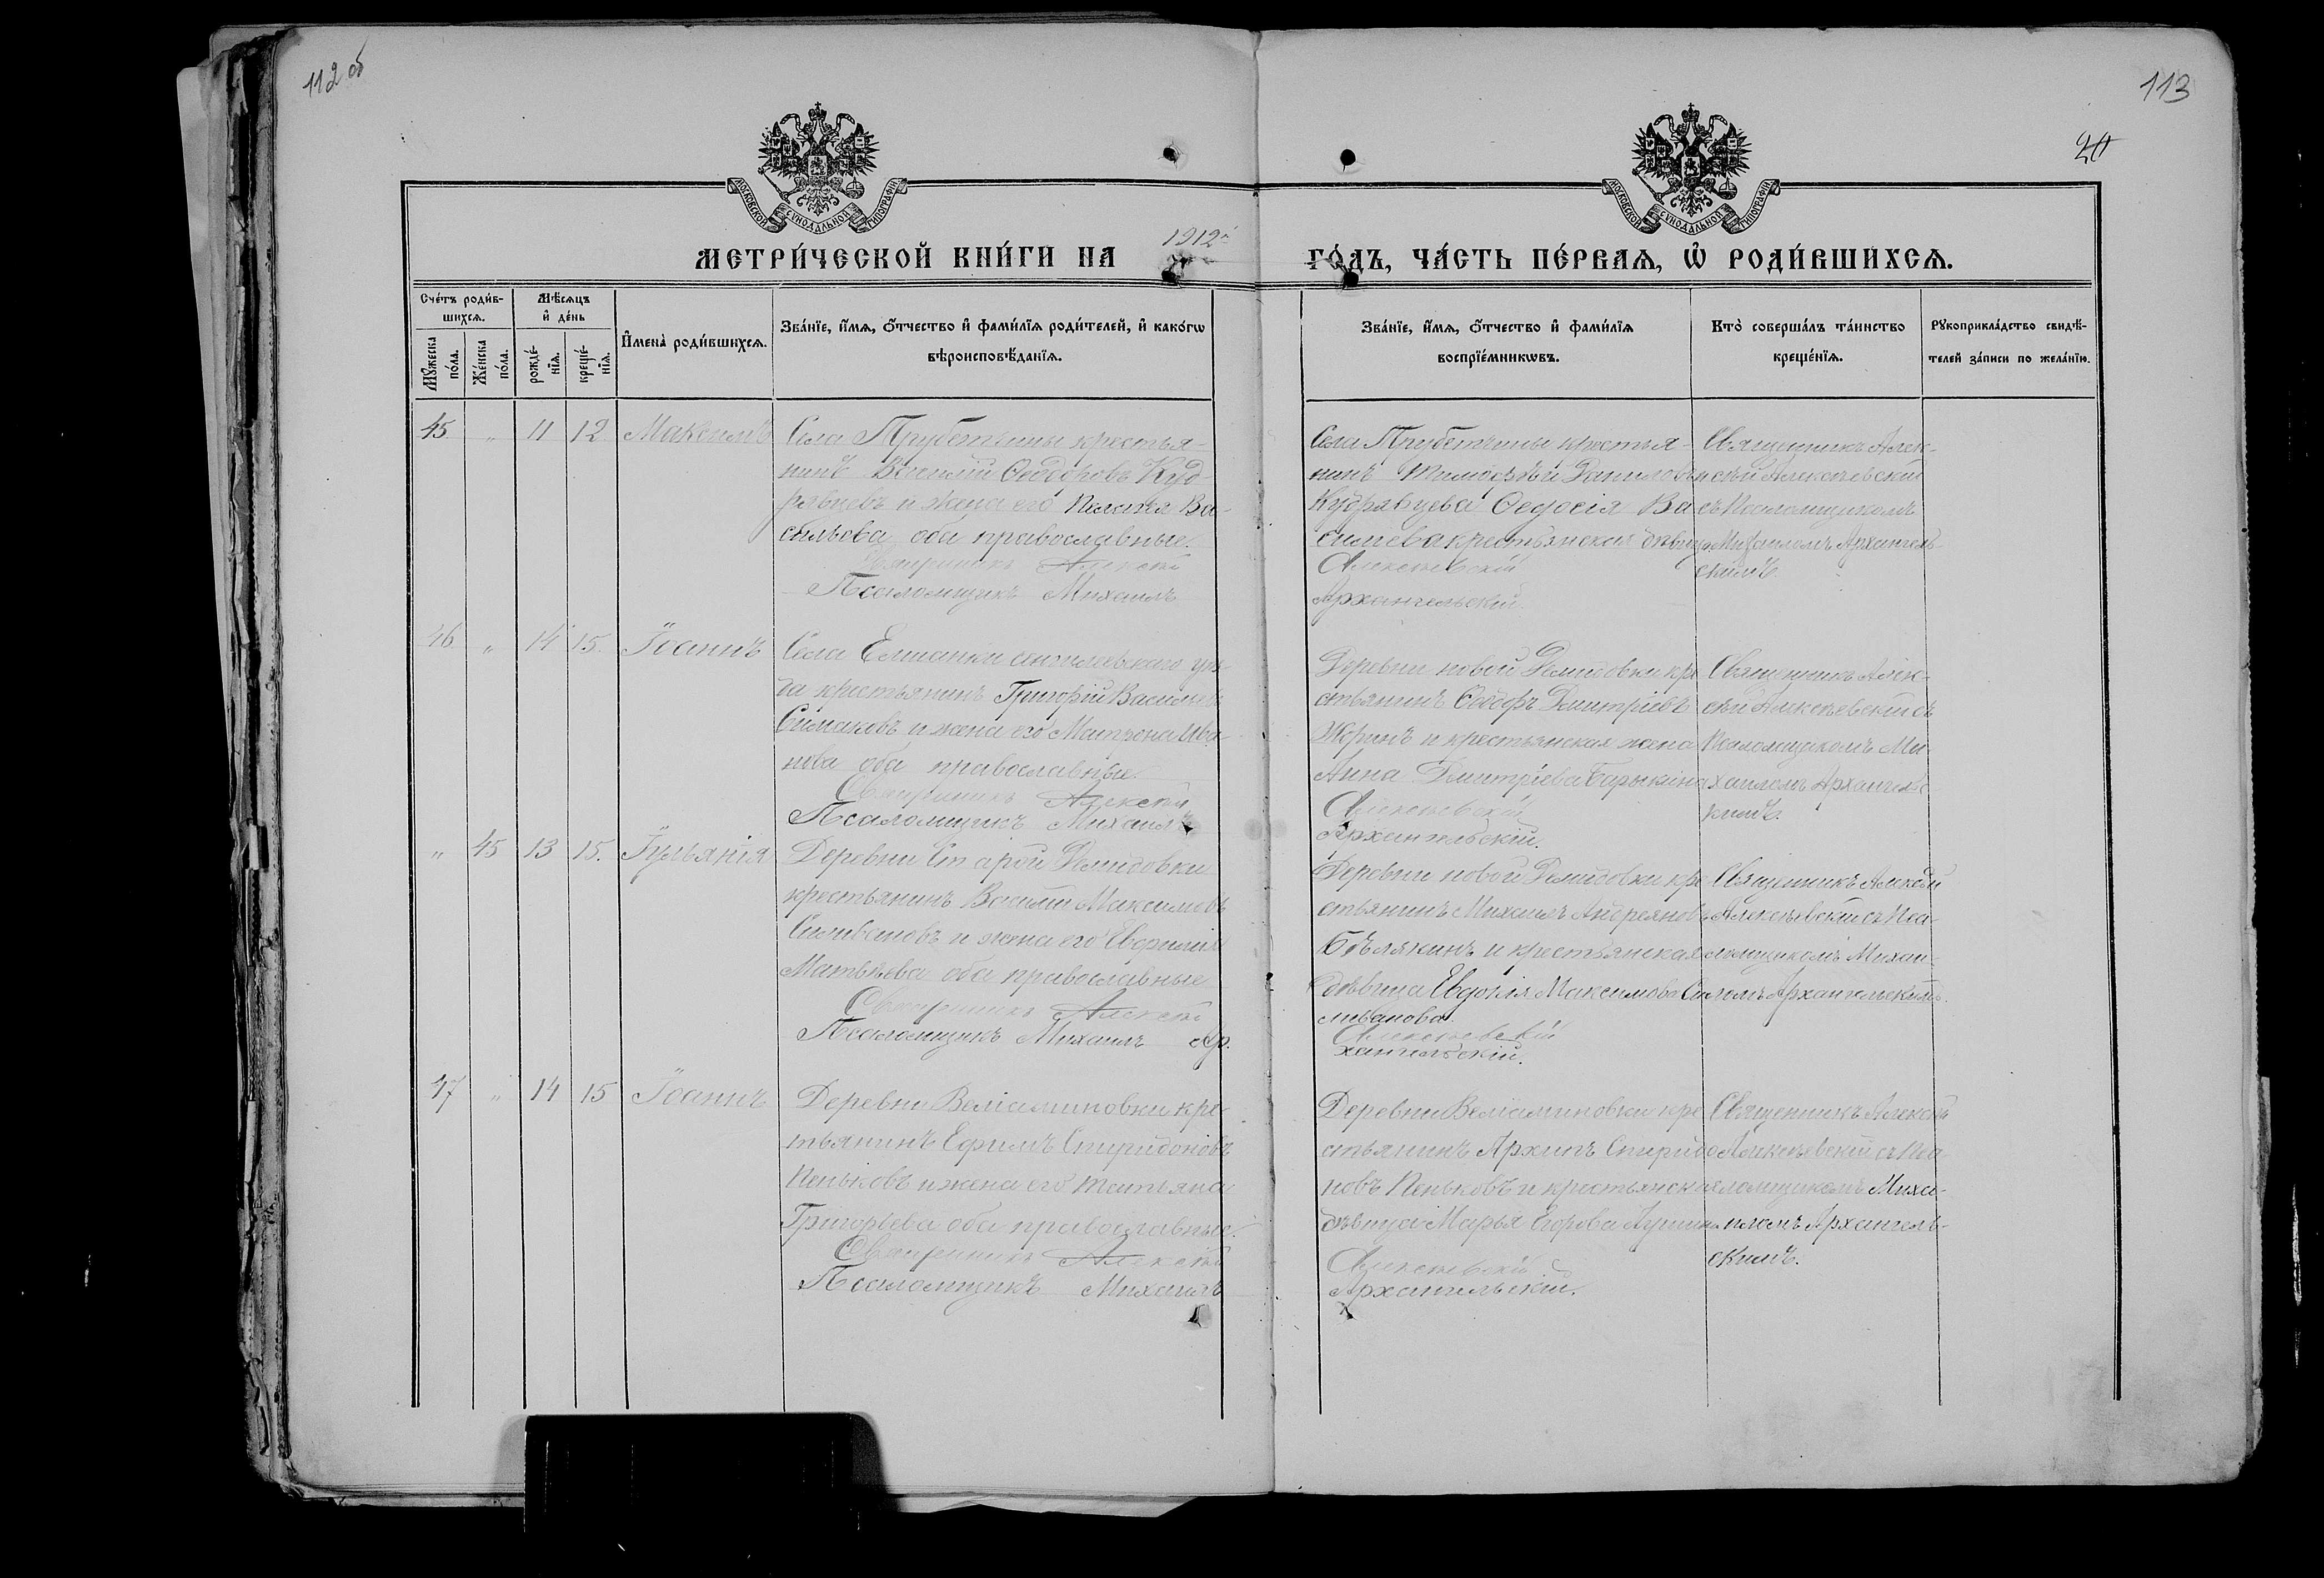 112 об
113
20
МОСКОВСКОЙ СѴНОДАЛЬНОЙ ТИПОГРАФІИ
МОСКОВСКОЙ СѴНОДАЛЬНОЙ ТИПОГРАФІИ
МЕТРИ́ЧЕСКОЙ КНИ́ГИ НА 1912й
ГО́ДЪ, ЧА́СТЬ ПЕ́РВАѦ, Ѽ РОДИ́ВШИХСѦ.
Сче́тъ роди́в-
шихсѧ.
Мꙋ́жеска
по́ла.
Же́нска
по́ла.
Мѣ́сѧцъ
и҆ де́нь
рожде́-
нїѧ.
креще́-
нїѧ.
И҆мена̀ роди́вшихсѧ.
Зва́нїе, и҆́мѧ, ѻ҆́тчество и҆ фами́лїѧ роди́телей, и҆ како́гѡ
вѣроисповѣ́данїѧ.
Зва́нїе, и҆́мѧ, ѻ҆́тчество и҆ фами́лїѧ
воспрїе́мникѡвъ.
Кто̀ соверша́лъ та́инство
креще́нїѧ.
Рꙋкоприкла́дство свидѣ́-
телей за́писи по жела́нїю.
45 " 11 12 Максимъ
Села Трубетчины крестья-
нинъ Василій Ѳеодоровъ Куд-
рявцевъ и жена его Пелагія Ва-
сильева оба православные.
Священникъ Алексѣй
Псаломщикъ Михаилъ
Села Трубетчины крестья-
нинъ Тимоѳей Даниловъ
Кудрявцева Ѳедосія Ва
силіева крестьянская дѣвица
Алексѣевскій
Архангельскій
Священникъ Алек-
сѣй Алексѣевскій
съ Псаломщикомъ
Михаиломъ Архангель-
скимъ.
46 " 14 15. Іоаннъ
Села Елшанки сенгилеевскаго уѣз
да крестьянинъ Григорій Васильевъ
Симаковъ и жена его Матрона Ива-
нова оба православные.
Священникъ Алексѣй
Псаломщикъ Михаилъ
Деревни новой Демидовки кре
стьянинъ Ѳеодоръ Дмитріевъ
Жоринъ и крестьянская жена
Анна Дмитріева Барыкина
Алексѣевскій
Архангельскій.
Священникъ Алек-
сѣй Алексѣевскій съ
Псаломщикомъ Ми-
хаиломъ Архангельс-
кимъ.
" 45 13 15. Іульянія
Деревни Старой Демидовки
крестьянинъ Василій Максимовъ
Силивановъ и жена его Евфимія
Матвѣева оба православные
Священникъ Алексѣй
Псаломщикъ Михаилъ Ар.
Деревни новой Демидовки кре
стьянинъ Михаилъ Андреяновъ
Бѣлякинъ и крестьянская
дѣвица Евдокія Максимова Си
ливанова.
Алексѣевскій
хангельскій.
Священникъ Алексѣй
Алексѣевскій съ Пса-
ломщикомъ Михаи-
ломъ Архангельскимъ.
47 " 14 15 Іоаннъ
Деревни Веліаминовки кре-
тьянинъ Ефимъ Спиридоновъ
Пеньковъ и жена его Татьяна
Григорьева оба православные.
Священникъ Алексѣй
Псаломщикъ Михаилъ
Деревни Веліаминовки кре
стьянинъ Архипъ Спиридо
новъ Пеньковъ и крестьянская
дѣвица Марья Егорова
Алексѣевскій
Архангельскій.
Священникъ Алексѣй
Алексѣевскій съ Пса-
ломщикомъ Миха-
иломъ Архангель-
скимъ.